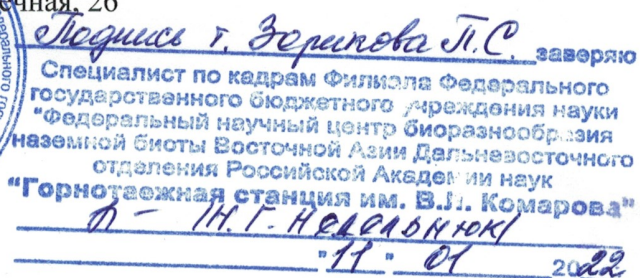 ечная, 26
Подпись т. Зорикова П.С. заверяю
Специалист по кадрам Филиала Федерального
государственного бюджетного учреждения науки
"Федеральный научный центр биоразнообразия
наземной биоты Восточной Азии Дальневосточного
отделения Российской Академии наук
"Горнотаежная станция им. В.Л. Комарова"
"11" 01 2022